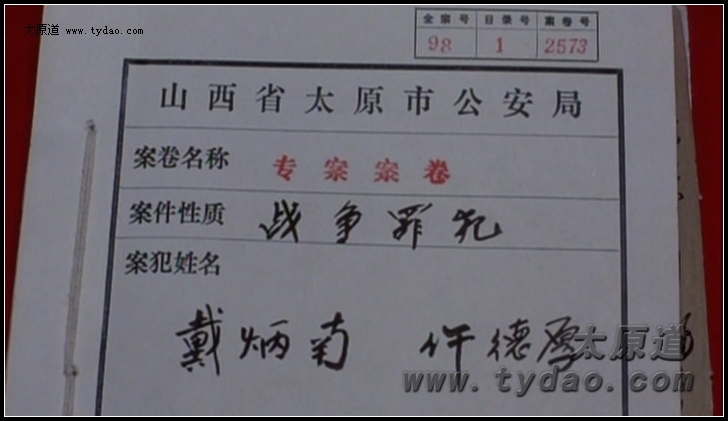 太原道 www.tydao.com
全宗号 目录号 案卷号
98 1 2573
山西省太原市公安局
案卷名称 专案案卷
案件性质 战争罪犯
案犯姓名
戴炳南 仵德厚
太原道
www.tydao.com